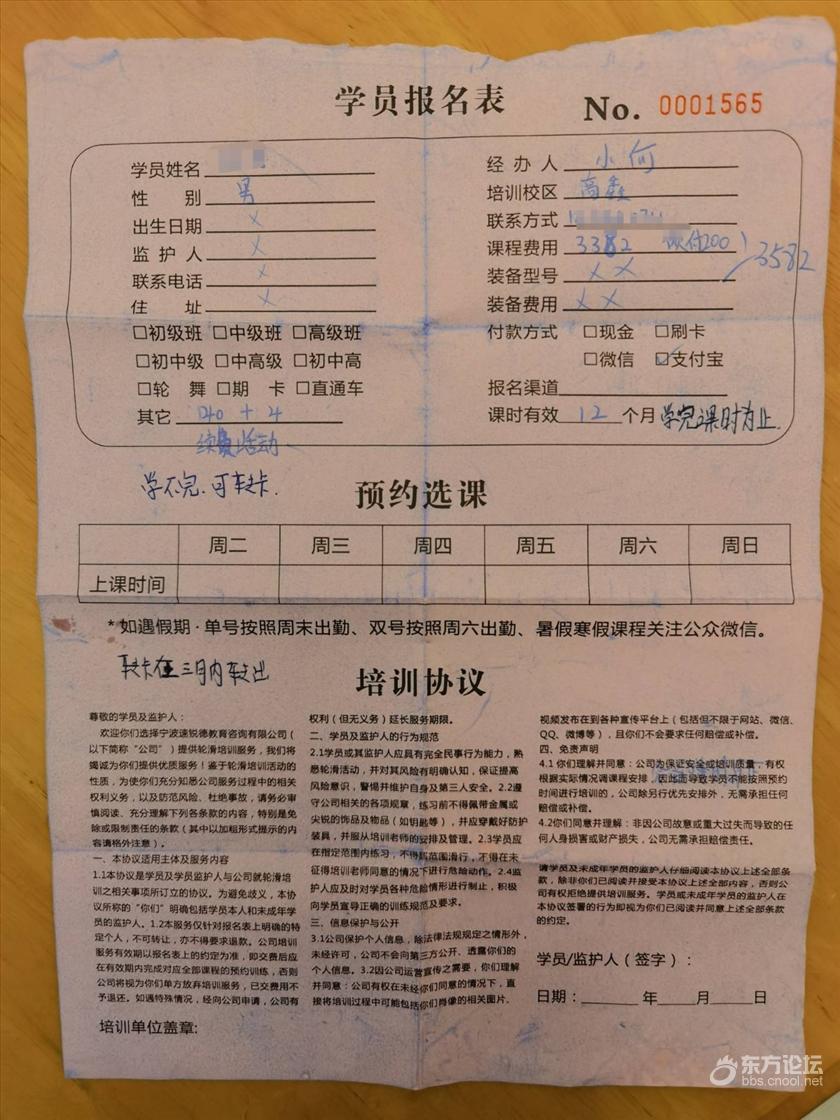 学员报名表 No. 0001565
学员姓名
性别 男
出生日期 ×
监护人 ×
联系电话 ×
住址 ×
□初级班 □中级班 □高级班
□初中级 □中高级 □初中高
□轮舞 □期卡 □直通车
其它 40+4
续费活动
经办人 小何
培训校区 高鑫
联系方式
课程费用 3382 200 3582
装备型号 ××
装备费用 ××
付款方式 □现金 □刷卡
□微信 ☑支付宝
报名渠道
课时有效 12 个月 学完课时为止.
学不完.可转卡.
预约选课
周二 周三 周四 周五 周六 周日
上课时间
*如遇假期·单号按照周末出勤、双号按照周六出勤、暑假寒假课程关注公众微信。
转卡在三月内转出
培训协议
尊敬的学员及监护人：
欢迎你们选择宁波速锐德教育咨询有限公司（
以下简称“公司”）提供轮滑培训服务，我们将
竭诚为你们提供优质服务！鉴于轮滑培训活动的
性质，为使你们充分知悉公司服务过程中的相关
权利义务，以及防范风险、杜绝事故，请务必审
慎阅读、充分理解下列各条款的内容，特别是免
除或限制责任的条款（其中以加粗形式提示的内
容请格外注意）。
一、本协议适用主体及服务内容
1.1本协议是学员及学员监护人与公司就轮滑培
训之相关事项所订立的协议。为避免歧义，本协
议所称的“你们”明确包括学员本人和未成年学
员的监护人。1.2本服务仅针对报名表上明确的特
定个人，不可转让，亦不得要求退款。公司培训
服务有效期以报名表上的约定为准，即交费后应
在有效期内完成对应全部课程的预约训练，否则
公司将视为你们单方放弃培训服务，已交费用不
予退还。如遇特殊情况，经向公司申请，公司有
权利（但无义务）延长服务期限。
二、学员及监护人的行为规范
2.1学员或其监护人应具有完全民事行为能力，熟
悉轮滑活动，并对其风险有明确认知，保证提高
风险意识，警惕并维护自身及第三人安全。2.2遵
守公司相关的各项规章，练习前不得佩带金属或
尖锐的饰品及物品（如钥匙等），并应穿戴好防护
装具，并服从培训老师的安排及管理。2.3学员应
在指定范围内练习，不得超范围滑行，不得在未
征得培训老师同意的情况下进行危险动作。2.4监
护人应及时对学员各种危险情形进行制止，积极
向学员宣导正确的训练规范及要求。
三、信息保护与公开
3.1公司保护个人信息，除法律法规规定之情形外，
未经许可，公司不会向第三方公开、透露你们的
个人信息。3.2因公司运营宣传之需要，你们理解
并同意：公司有权在未经你们同意的情况下，直
接将培训过程中可能包括你们肖像的相关图片、
视频发布在到各种宣传平台上（包括但不限于网站、微信、
QQ、微博等），且你们不会要求任何赔偿或补偿。
四、免责声明
4.1 你们理解并同意：公司为保证安全或培训质量，有权
根据实际情况调课程安排，因此而导致学员不能按照预约
时间进行培训的，公司除另行优先安排外，无需承担任何
赔偿或补偿。
4.2你们同意并理解：非因公司故意或重大过失而导致的任
何人身损害或财产损失，公司无需承担赔偿责任。
请学员及未成年学员的监护人仔细阅读本协议上述全部条
款，除非你们已阅读并接受本协议上述全部内容，否则公
司有权拒绝提供培训服务。学员或未成年学员的监护人在
本协议签署的行为即视为你们已阅读并同意上述全部条款
的约定。
学员/监护人（签字）：
日期：______年____月____日
培训单位盖章:
东方论坛
bbs.cnool.net